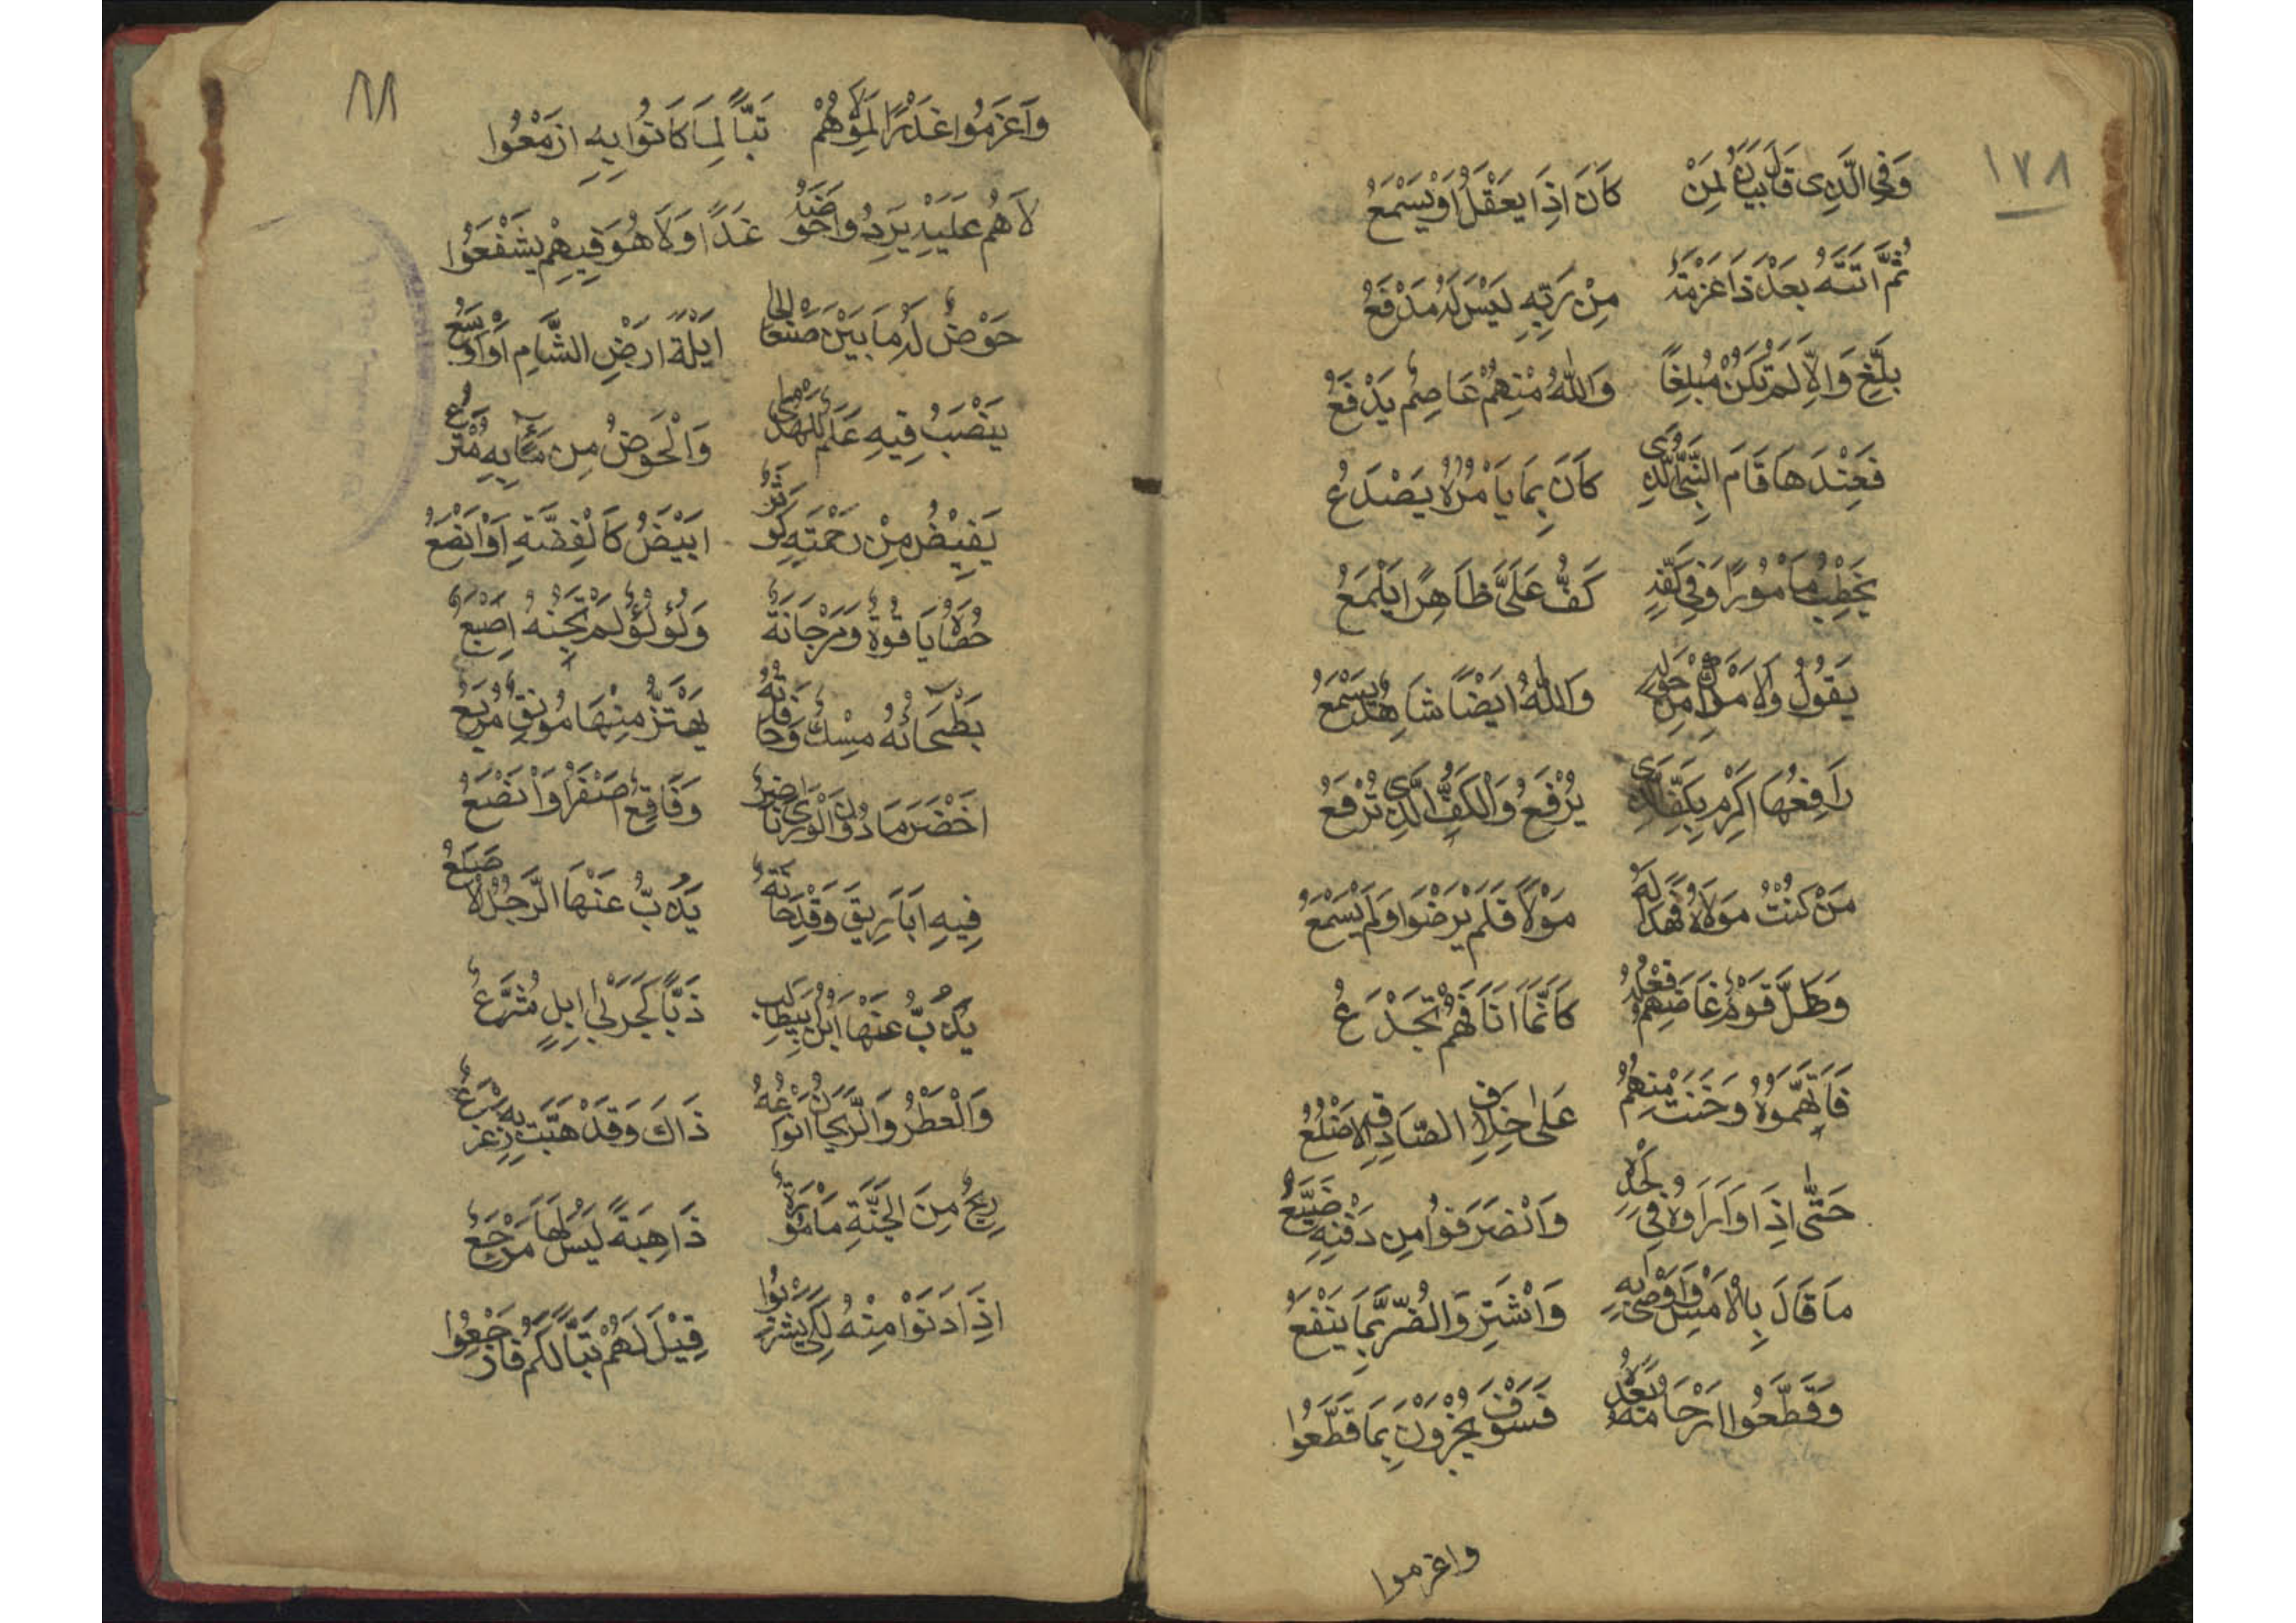 ١٧٨
وَفِي الَّذِى قَالَ بَيَانٌ لِمَنْ كَانَ اِذَا يَعْقِلُ اَوْ يَسْمَعُ
ثُمَّ اَتَتْهُ بَعْدَ ذَا عَزْمَةٌ مِنْ رَبِّهِ لَيْسَ لَهُ مَدْفَعُ
بَلِّغْ وَاِلَّا لَمْ تَكُنْ مُبْلِغًا وَاللّٰهُ مِنْهُمْ عَاصِمٌ يَدْفَعُ
فَعِنْدَهَا قَامَ النَّبِيُّ الَّذِى كَانَ بِمَا يَأْمُرُهُ يَصْدَعُ
يَخْطُبُ مَأْمُورًا وَفِي كَفِّهِ كَفُّ عَلِيٍّ ظَاهِرًا يَلْمَعُ
يَقُولُ وَالْاَمْلَاكُ مِنْ حَوْلِهِ وَاللّٰهُ اَيْضًا شَاهِدٌ يَسْمَعُ
رَافِعُهَا اَكْرِمْ بِكَفِّ الَّذِى يُرْفَعُ وَالْكَفُّ الَّذِى تُرْفَعُ
مَنْ كُنْتُ مَوْلَاهُ فَهَذَا لَهُ مَوْلًا فَلَمْ يَرْضَوْا وَلَمْ يَسْمَعُ
وَظَلَّ قَوْمٌ غَاضَهُمْ فِعْلُهُ كَاَنَّمَا اٰنَافُهُمْ تُجْدَعُ
فَاتَّهَمُوهُ وَحَنَتْ مِنْهُمُ عَلَى خِلَافِ الصَّادِقِ الْاَضْلُعُ
حَتَّى اِذَا وَارَاوْهُ فِي لَحْدِهِ وَانْصَرَفُوا مِنْ دَفْنِهِ ضَيَّعُ
مَا قَالَ بِالْاَمْسِ وَاَوْصَى بِهِ وَاشْتَرَوُا الضُّرَّ بِمَا يَنْفَعُ
وَقَطَّعُوا اَرْحَامَهُ بَعْدَهُ فَسَوْفَ يُجْزَوْنَ بِمَا قَطَّعُوا
واعزموا
وَاَعْزَمُوا غَدْرًا لِمَوْلَاهُمْ تَبًّا لِمَا كَانُوا بِهِ اَزْمَعُوا
لَاهُمْ عَلَيْهِ يَرِدُوا حَوْضَهُ غَدًا وَلَا هُوَ فِيهِمْ يَشْفَعُوا
حَوْضٌ لَهُ مَا بَيْنَ صَنْعَا اِلَى اَيْلَةَ اَرْضِ الشَّامِ اَوْ اَوْسَعُ
يَنْصِبُ فِيهِ عَلَمٌ لِلْهُدَى وَالْحَوْضُ مِنْ مَاءٍ بِهِ مُتْرَعُ
يَفِيْضُ مِنْ رَحْمَتِهِ كَوْثَرٌ اَبْيَضُ كَالْفِضَّةِ اَوْ اَنْصَعُ
حُصَاهُ يَاقُوتٌ وَمَرْجَانَةٌ وَلُؤْلُؤٌ لَمْ تَجْنِهِ اِصْبَعُ
بَطْحَائُهُ مِسْكٌ وَحَافَاتُهُ يَهْتَزُّ مِنْهَا مُونِقٌ مُرْبِعُ
اَخْضَرُ مَا دُونَ الْوَرَى نَاضِرٌ وَفَاقِعٌ اَصْفَرُ اَوْ اَنْصَعُ
فِيهِ اَبَارِيقُ وَقِدْحَانَةٌ يَذُبُّ عَنْهَا الرَّجُلُ الْاَصْلَعُ
يَذُبُّ عَنْهَا ابْنُ اَبِيطَالِبٍ ذَبًّا كَجَرْبَى اِبِلٍ شُرَّعُ
وَالْعِطْرُ وَالرَّيْحَانُ اَنْوَاعُهُ ذَاكَ وَقَدْ هَبَّتْ بِهِ زَعْزَعُ
رِيحٌ مِنَ الْجَنَّةِ مَأْمُورَةٌ ذَاهِبَةً لَيْسَ لَهَا مَرْجَعُ
اِذَا دَنَوْا مِنْهُ لِكَىْ يَشْرَبُوا قِيْلَ لَهُمْ تَبًّا لَكُمْ فَارْجِعُوا